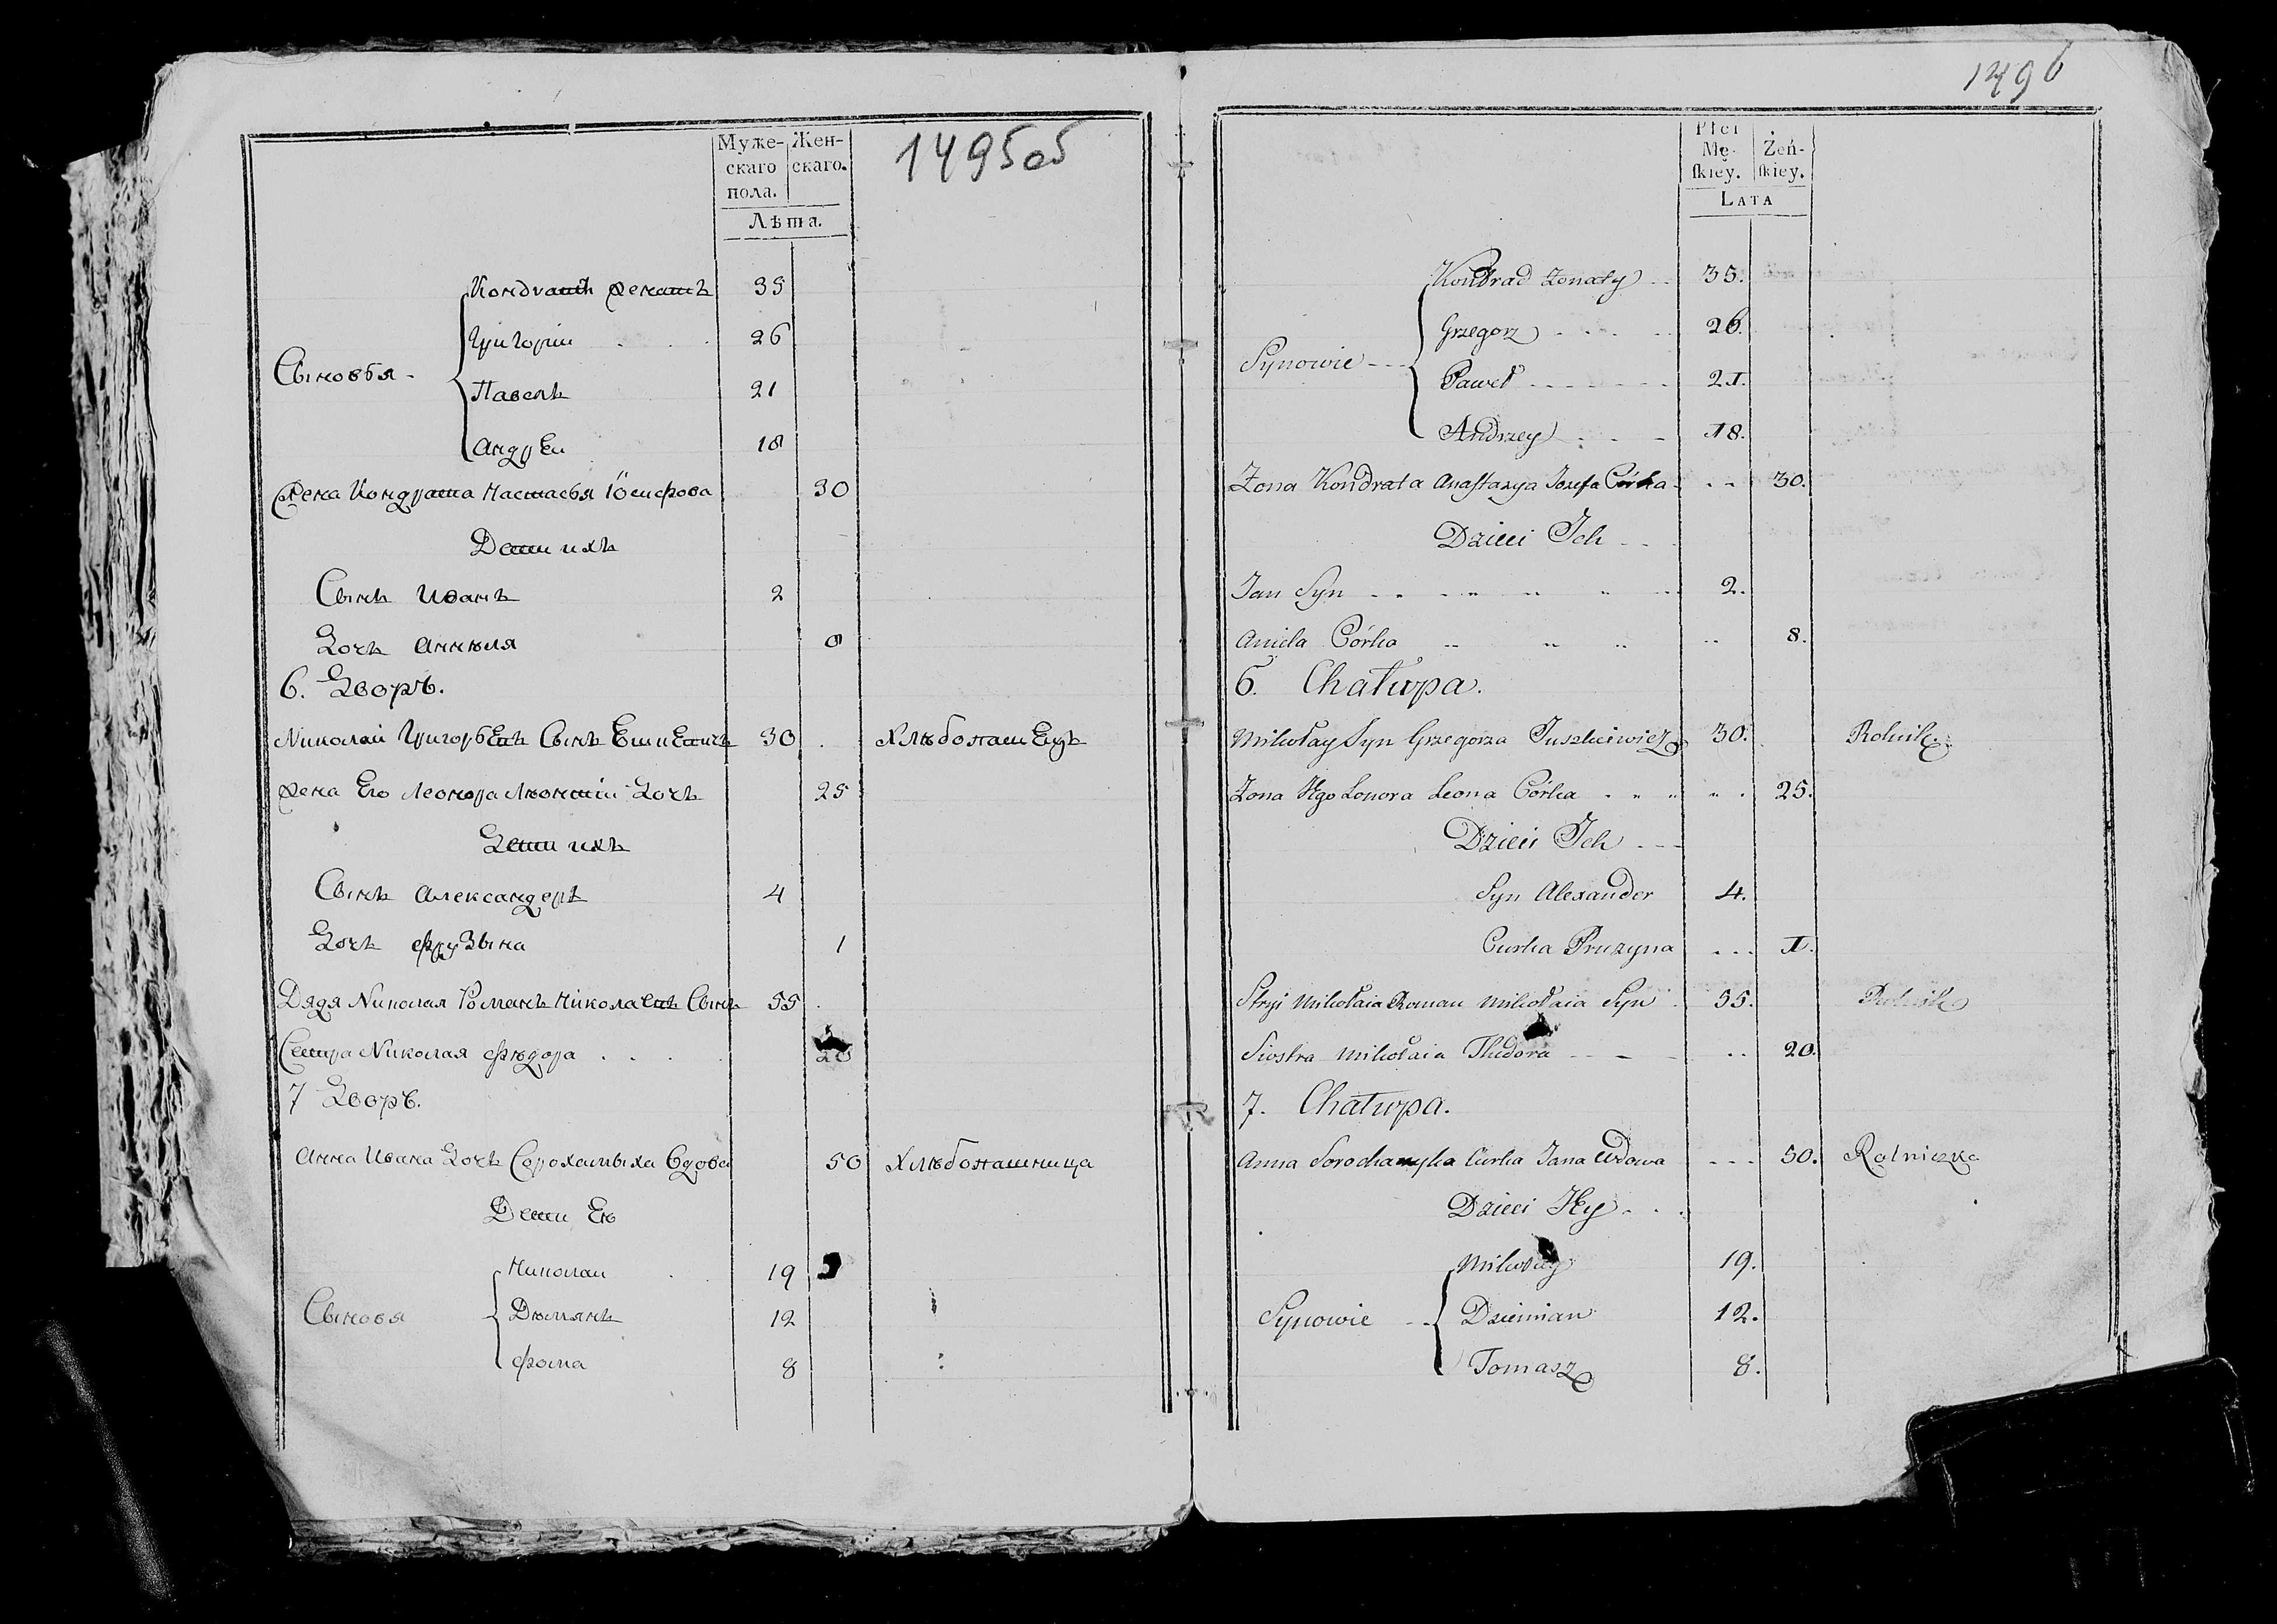 1495об
Муже-
скаго
пола.
Жен-
скаго.
Лѣта.
Сыновья -
Кондратъ женатъ 35
Григорій 26
Павелъ 21
Андрей 18
Жена Кондрата Настасья Іосифова 30
Дети ихъ
Сынъ Иванъ 2
Дочь Аннеля 8
6. Дворъ.
Николай Григорьевъ Сынъ 30 Хлѣбопашецъ
Жена Его Леонора Дочь 25
Дети ихъ
Сынъ Александеръ 4
Дочь Фрузына 1
Дядя Николая Романъ Николаевъ Сынъ 55
Сестра Николая Фѣдора 20
7 Дворъ.
Анна Ивана Дочь Вдова 50 Хлѣбопашница
Дети Ея
Сыновя
Николай 19
Дѣмянъ 12
Фома 8
1496
Płci
Mę-
skiey.
Żeń-
skiey.
LATA
Synowie
Kondrad żonaty 35.
Grzegorz 26.
Paweł 21.
Andrzey 18.
Zona Kondrata Anastazya Jozefa Córka 30.
Dzieci Ich
Jan Syn 2.
Aniela Córka 8.
6. Chałupa.
Mikołay Syn Grzegorza Juszkiewicz 30. Rolnik.
Zona Jego Lonora Leona Córka 25.
Dzieci Ich
Syn Alexander 4.
Curka Pruzyna 1.
Stryi Mikołaia Roman Mikołaia Syn 55. Rolnik
Siostra Mikołaia Thedora 20.
7. Chałupa.
Anna Curka Jana Wdowa 50. Rolniczka
Dzieci Jey
Synowie
Mikołay 19.
Dziemian 12.
Tomasz 8.